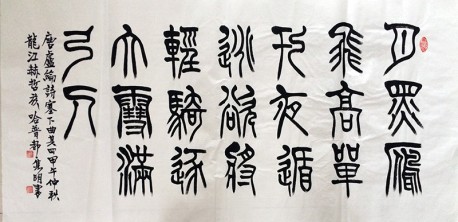 月黑雁
飛高單
于夜遁
逃欲將
輕騎逐
大雪滿
弓刀
唐盧綸詩塞下曲其四甲午仲秋
龍江赫哲族哈普都隽明書